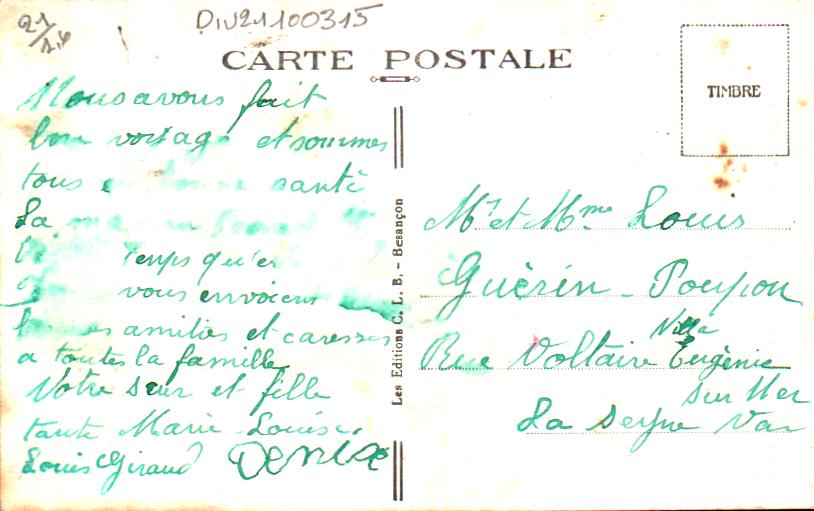 21/1.6
DIV21100315
CARTE POSTALE
TIMBRE
Nous avons fait
bon voyage et sommes
tous en bonne santé
La
temps qu'er
vous envoient
amitiés et caresses
a toutes la famille
Votre seur et fille
tante Marie-Louise.
Louis Giraud Denise
Les Editions C. L. B. - Besançon
Mr et Mme Louis
Guérin - Poupon
Villa
Rue Voltaire Eugénie
sur Mer
La Seyne Var